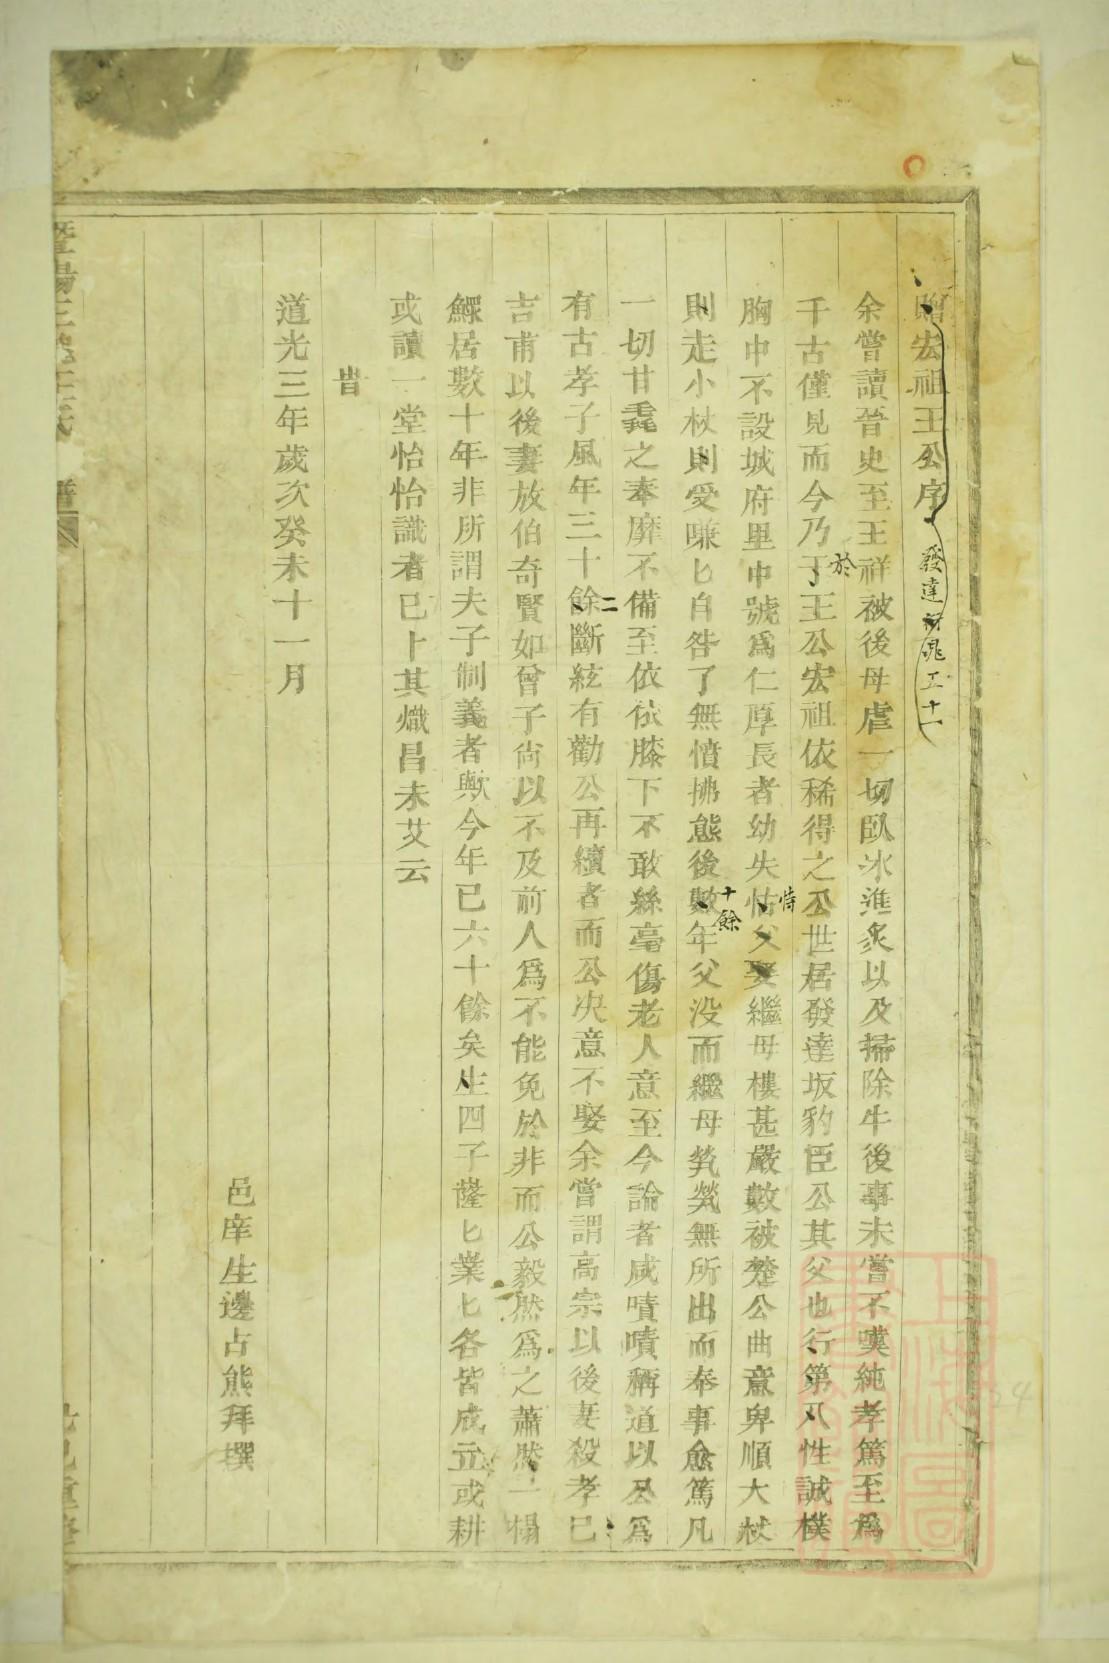 贈宏祖王公序
發達 十一
余嘗讀晉史至王祥被後母虐一切臥冰進炙以及掃除牛後事未嘗不嘆純孝篤至爲
千古僅見而今乃于王公宏祖依稀得之公世居發達坂豹臣公其父也行第八性誠樸
於
胸中不設城府里中號爲仁厚長者幼失怙父娶繼母樓甚嚴數被楚公曲意卑順大杖
恃
則走小杖則受嗛匕自咎了無憤拂態後數年父没而繼母煢煢無所出而奉事愈篤凡
十餘
一切甘毳之奉靡不備至依依膝下不敢絲毫傷老人意至今論者咸嘖嘖稱道以公爲
有古孝子風年三十餘斷絃有勸公再續者而公決意不娶余嘗謂高宗以後妻殺孝已
二
吉甫以後妻放伯奇賢如曾子尙以不及前人爲不能免於非而公毅然爲之蕭然一榻
鰥居數十年非所謂夫子制義者歟今年已六十餘矣生四子薩匕業匕各皆成立或耕
或讀一堂怡怡識者已卜其熾昌未艾云
旹
道光三年歲次癸未十一月
邑庠生邊占熊拜撰